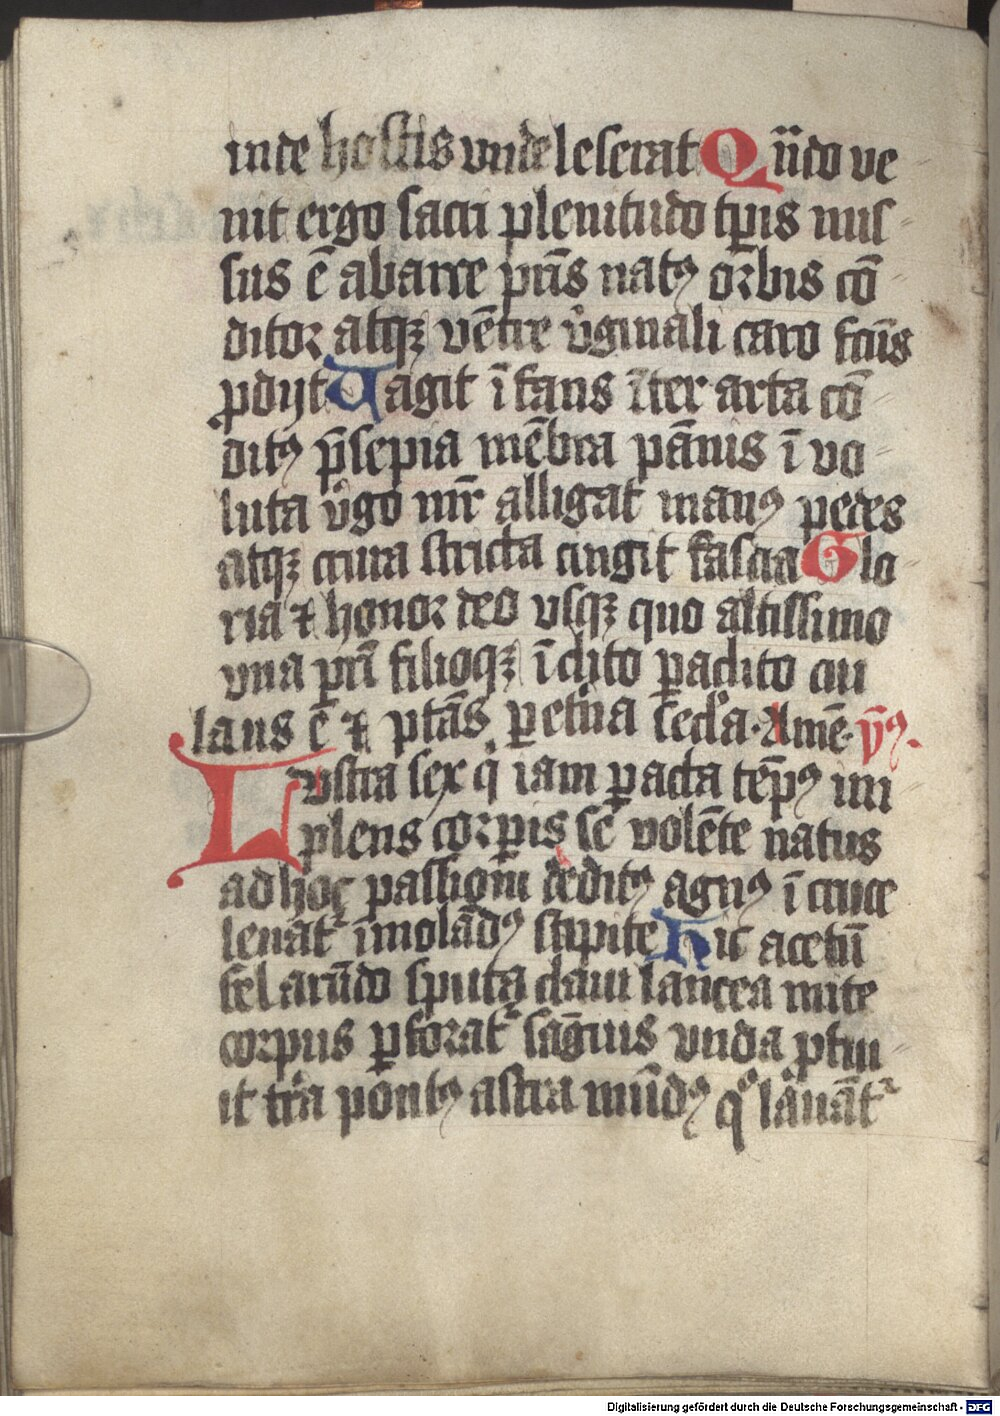 inde hostis vnde leserat Qn̄do ve
nit ergo sacri plenitudo tꝑis mis
sus ē ab arce pr̄is natꝰ orbis cō
ditor atqꝫ vētre v̾ginali caro fcūs
ꝓdijt Uagit īfans īter arta cō
ditꝰ p̄sepia mēbra pānis īuo
luta v̾go mr̄ alligat manꝰ pedes
atqꝫ crura stricta cingit fascia Glo
ria ⁊ honor deo vsqꝫ quo altissimo
vna pr̄i filioqꝫ īclito paraclito cui
laus ē ⁊ ptās ꝑ et̾na secl̾a · Amē · v̄ꝰ.
Lvstra sex qͥ iam ꝑacta tēpꝰ im
plens corꝑis se volēte natus
ad hoc passiōni deditꝰ agnꝰ ī cruce
leuat᷑ īmolādꝰ stipite Hic acetū
fel arūdo sputa claui lancea mite
corpus ꝑforat᷑ sāguis vnda ꝓflu
it tr̄a pontꝰ astra mūdꝰ qͦ lauāt᷑
Digitalisierung gefördert durch die Deutsche Forschungsgemeinschaft - DFG